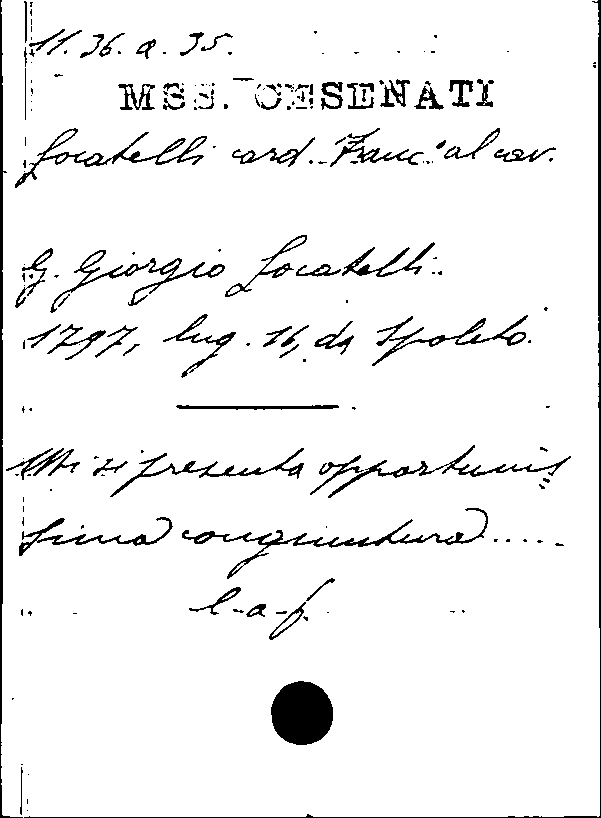 11. 36. a. 35.
MSS. CESENATI
Locatelli card. Franc.º al cav.
G. Giorgio Locatelli.
1797, lug. 16, da Spoleto.
Mi si presenta opportunis
sima congiuntura.....
l-a-f.